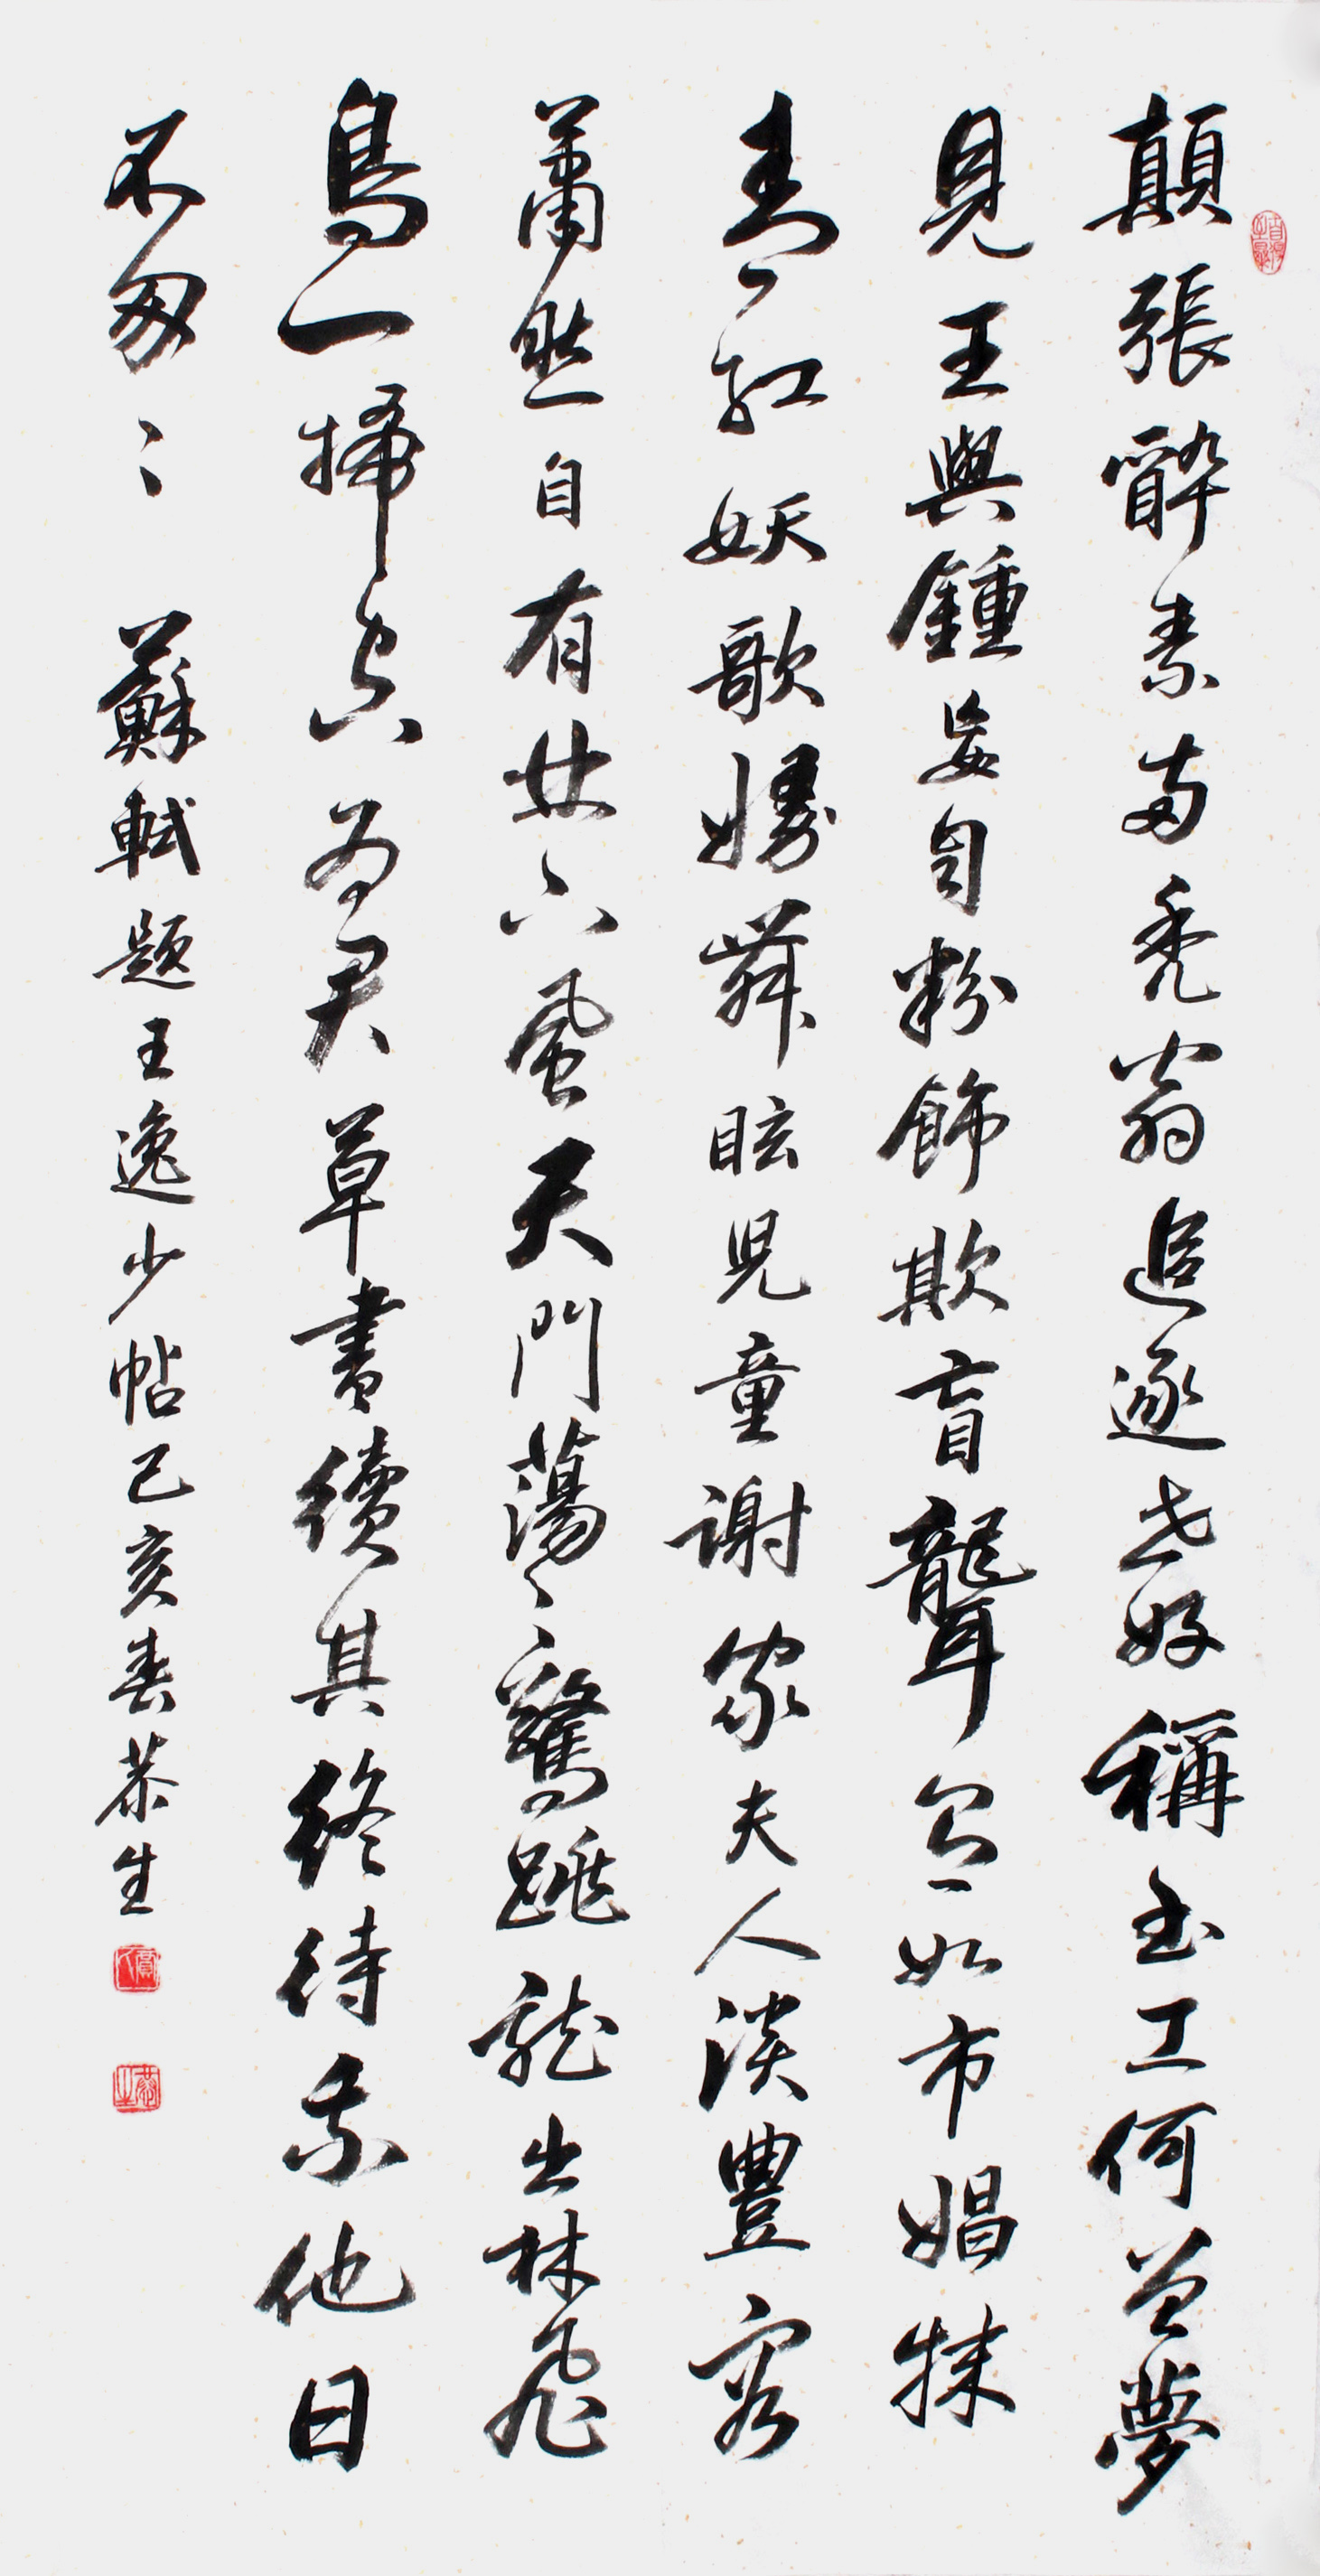 顛張醉素兩禿翁追逐世好稱書工何曾夢
見王與鍾妄自粉飾欺盲聾有如市娼抹
青紅妖歌嫚舞眩兒童謝家夫人淡豐容
蕭然自有林下風天門蕩〻驚跳龍出林飛
鳥一掃空為君草書續其終待我他日
不匆〻 蘇軾題王逸少帖己亥春恭生